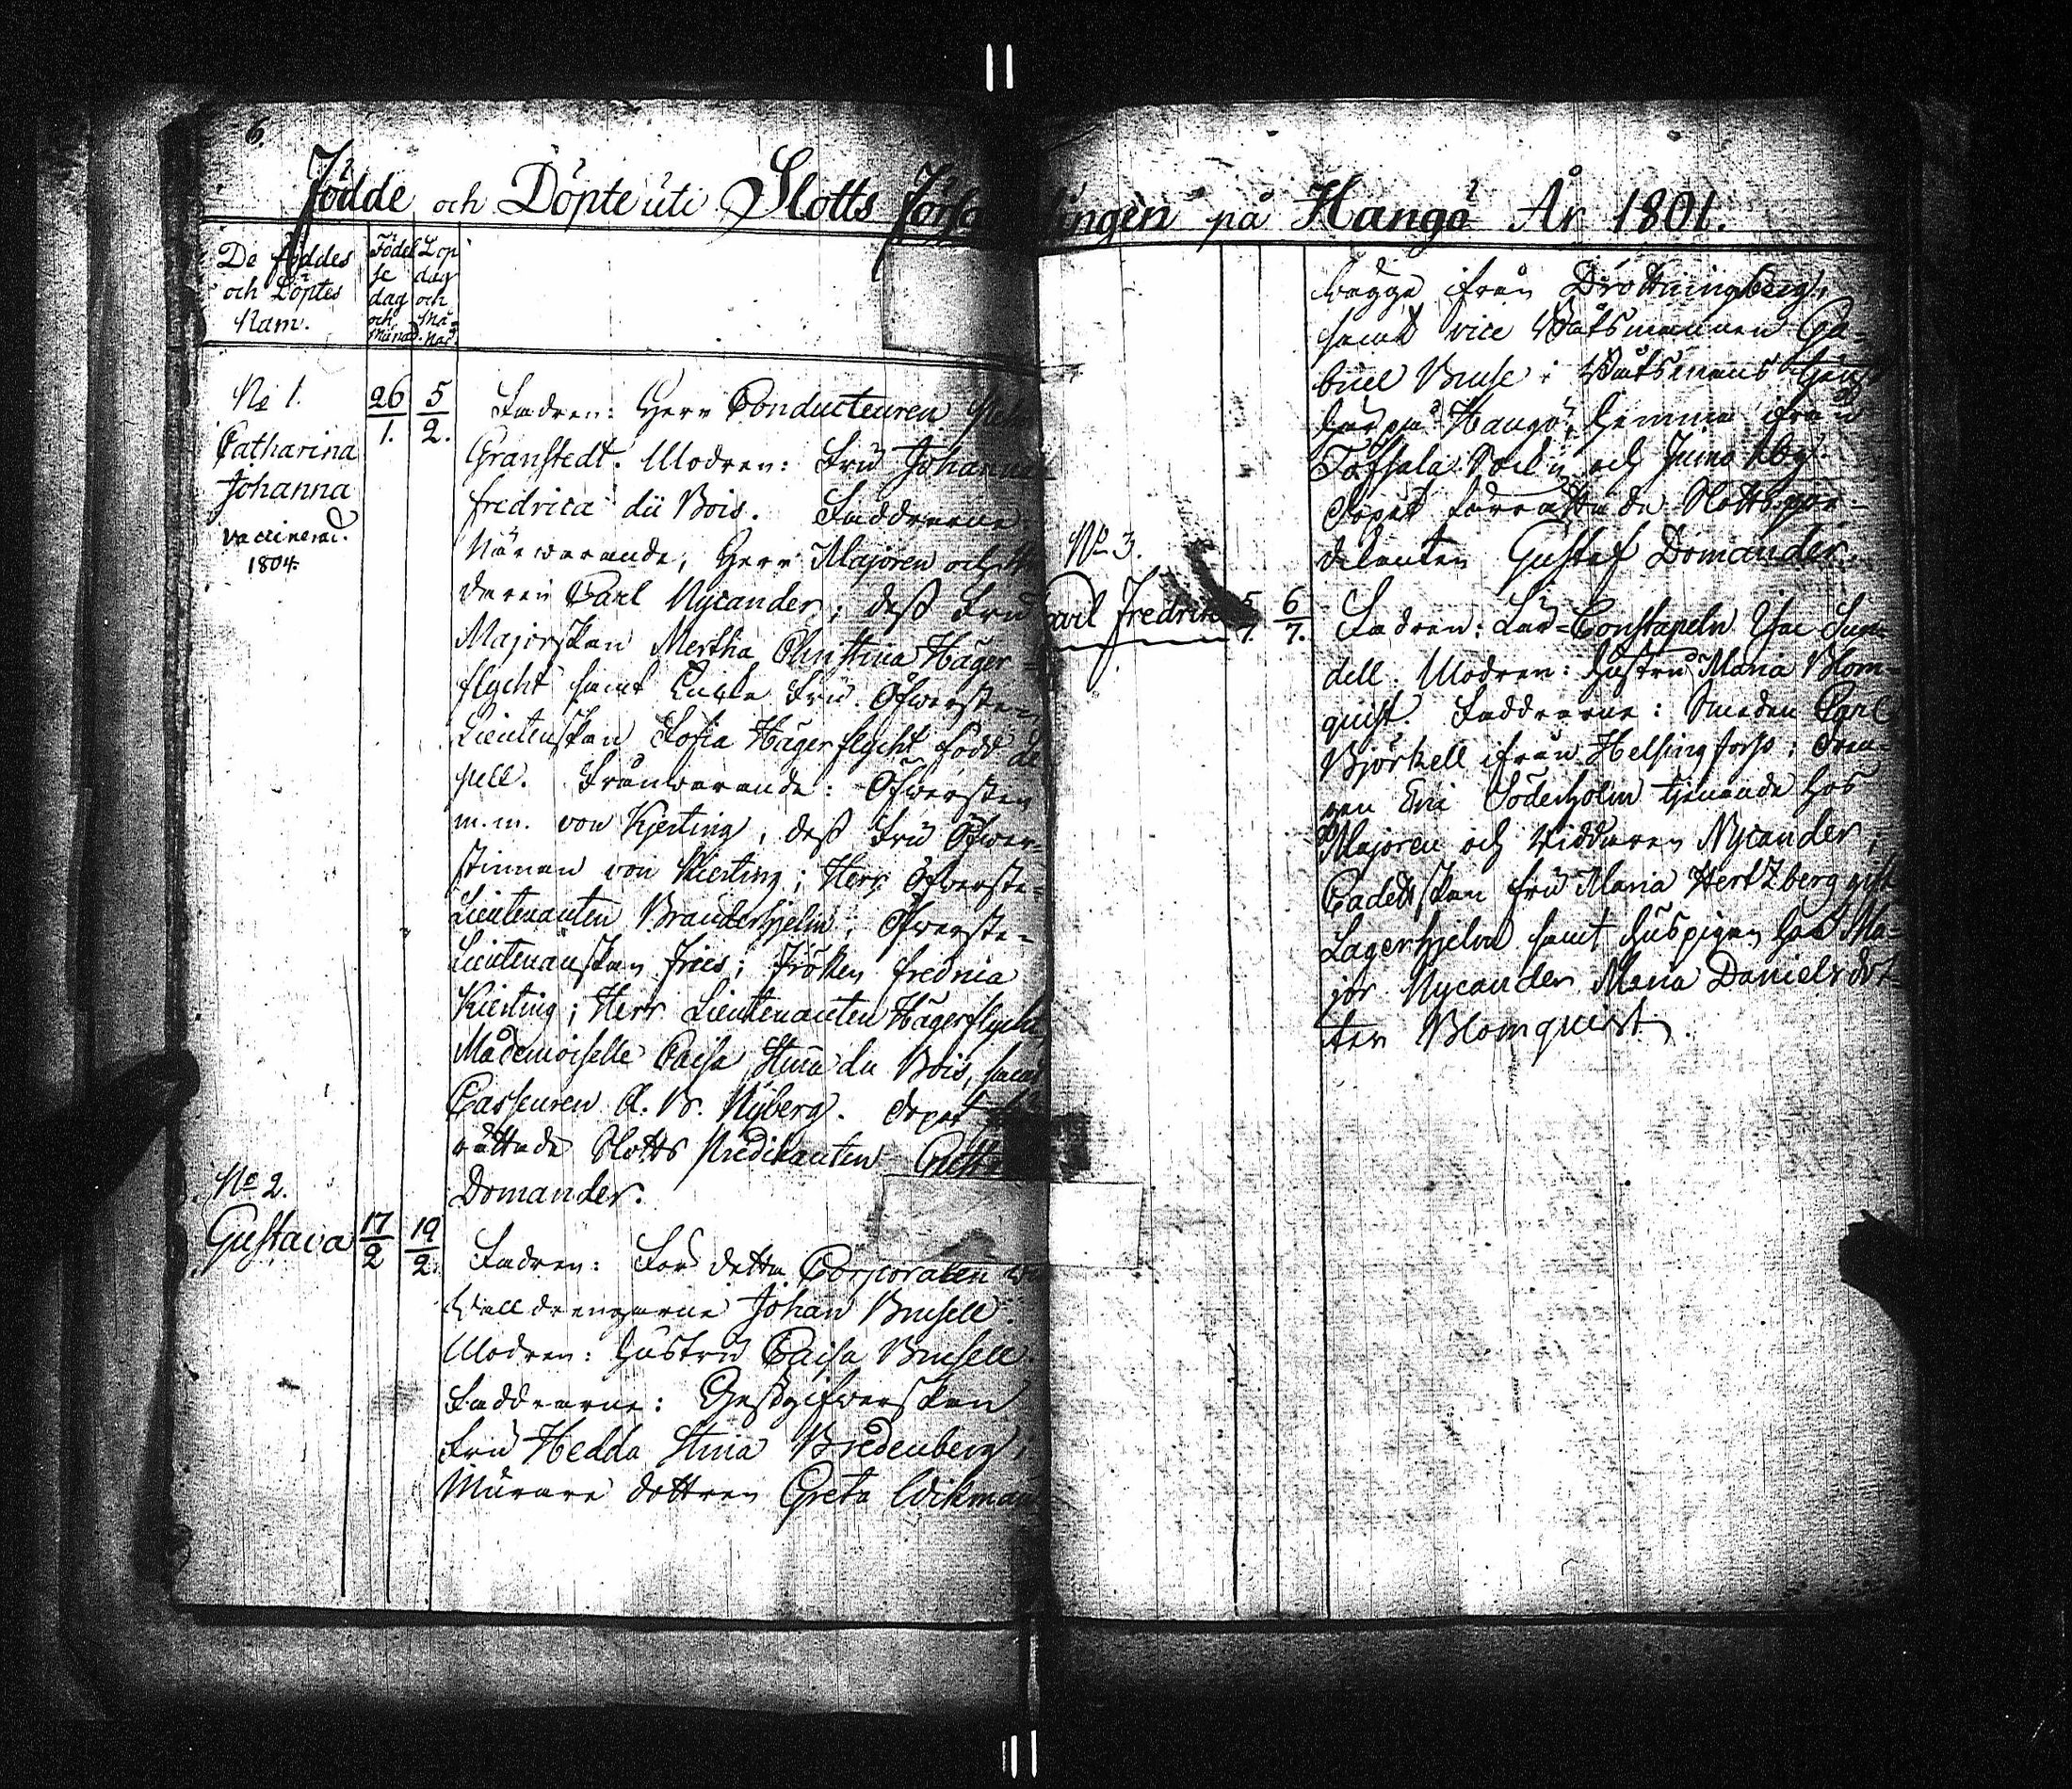 6.
Födde och Döpte uti Slotts Förs lingen på Hangö År 1801.
De föddes
och Döptes
Namn.
Födel
se
dag
och
Månad.
Döp
dag
och
Må=
nad.
No 1.
Catharina
Johanna
vaccinerad.
1804.
26
1.
5
2.
Fadren: Herr Conducteuren
Granstedt. Modren: Fru Johanna
Fredrica du Bois. Faddrarne
Närwarande; Herr Majoren och
daren Carl Nycander; dess Fru
Majorskan Mertha Christina Häger=
flycht samt Enkle Fru Öfwerste
Lieutenskan Sofia Hägerflycht född de
pell. Frånwarande: Öfwersten
m.m. von Kierting, dess Fru Öfwer=
stinnan von Kierting; Herr Öfwerste=
Lieutenanten Branderhjelm; Öfwerste=
Lieutenanskan Fries; Fröken Fredrica
Kierting; Herr Lieutenanten Hägerflycht
Mademoiselle Caisa Stina du Bois, samt
Casseuren A. B. Nyberg. Dopet
rättade Slotts Predikanten
Domander.
No 2.
Gustava
17
2
19
2.
Fadren: För detta Corporalen
Johan Brusell.
Modren: hustru Caisa Brusell.
Faddrarne: Gestgifwerskan
Fru Hedda Stina Bredenberg;
Murare dottren Greta Wikman
begge ifrån Drottningberg;
samt vice Båtsmannen Ga=
briel Bruse i Båtsmans
på Hangö, hemma ifrån
Töfsala Sockn och Jumo by.
Dopet förrättade Slottspre=
dikanten Gustaf Domander.
No 3.
Carl Fredrik
5
7.
6
7.
Fadren: Lär=Constapeln Isac Sun=
dell. Modren: Hustru Maria Blom=
quist. Faddrarne: Smeden Carl
Björkell ifrån Helsingfors; Dren=
gen Eric Söderholm tjenande hos
Majoren och Riddaren Nycander;
Cadettskan Fru Maria Hertzberg gift
Lagerhjelm samt huspigan hos Ma=
jor Nycander Maria Danielsdot=
ter Blomquist.